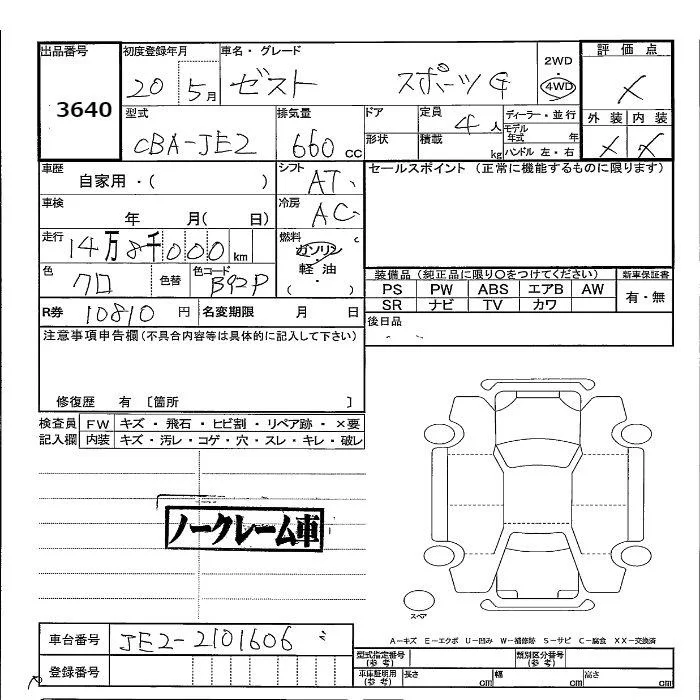 出品番号 初度登録年月 車名・グレード 評価点
3640 20 5月 ゼスト スポーツG 2WD・4WD ×
型式 排気量 ドア 定員 ディーラー・並行 外装 内装
CBA-JE2 660cc 4人 モデル年式 年 × ×
形状 積載 kg ハンドル 左・右
車歴 自家用・( ) シフト AT セールスポイント(正常に機能するものに限ります)
車検 年 月( 日) 冷房 AC
走行 14万8千000km 燃料 ガソリン・軽油・( )
色 クロ 色替 色コード B92P 装備品(純正品に限り○をつけてください) 新車保証書
PS PW ABS エアB AW 有・無
SR ナビ TV カワ
R券 10810円 名変期限 月 日 後日品
注意事項申告欄(不具合内容等は具体的に記入して下さい)
修復歴 有 〔箇所 〕
検査員記入欄 FW キズ・飛石・ヒビ割・リペア跡・×要
内装 キズ・汚レ・コゲ・穴・スレ・キレ・破レ
ノークレーム車
スペア
A-キズ E-エクボ U-凹み W-補修跡 S-サビ C-腐食 XX-交換済
車台番号 JE2-2101606
型式指定番号(参考) 類別区分番号(参考)
登録番号 車庫証明用(参考) 長さ cm 幅 cm 高さ cm